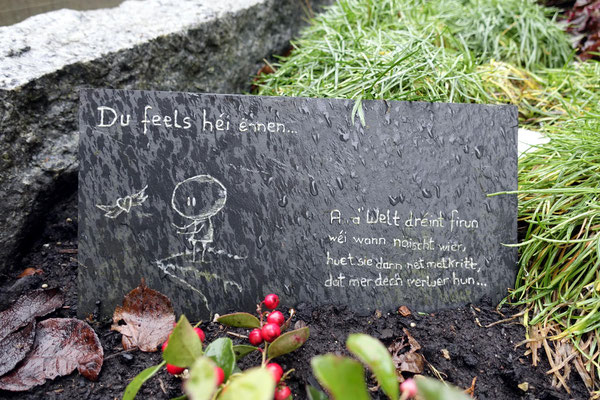 Du feels héi ënnen...
A... d'Welt dréint firun
wéi wann naischt wier,
huet sie dann net matkritt,
dat mer dech verluer hun...